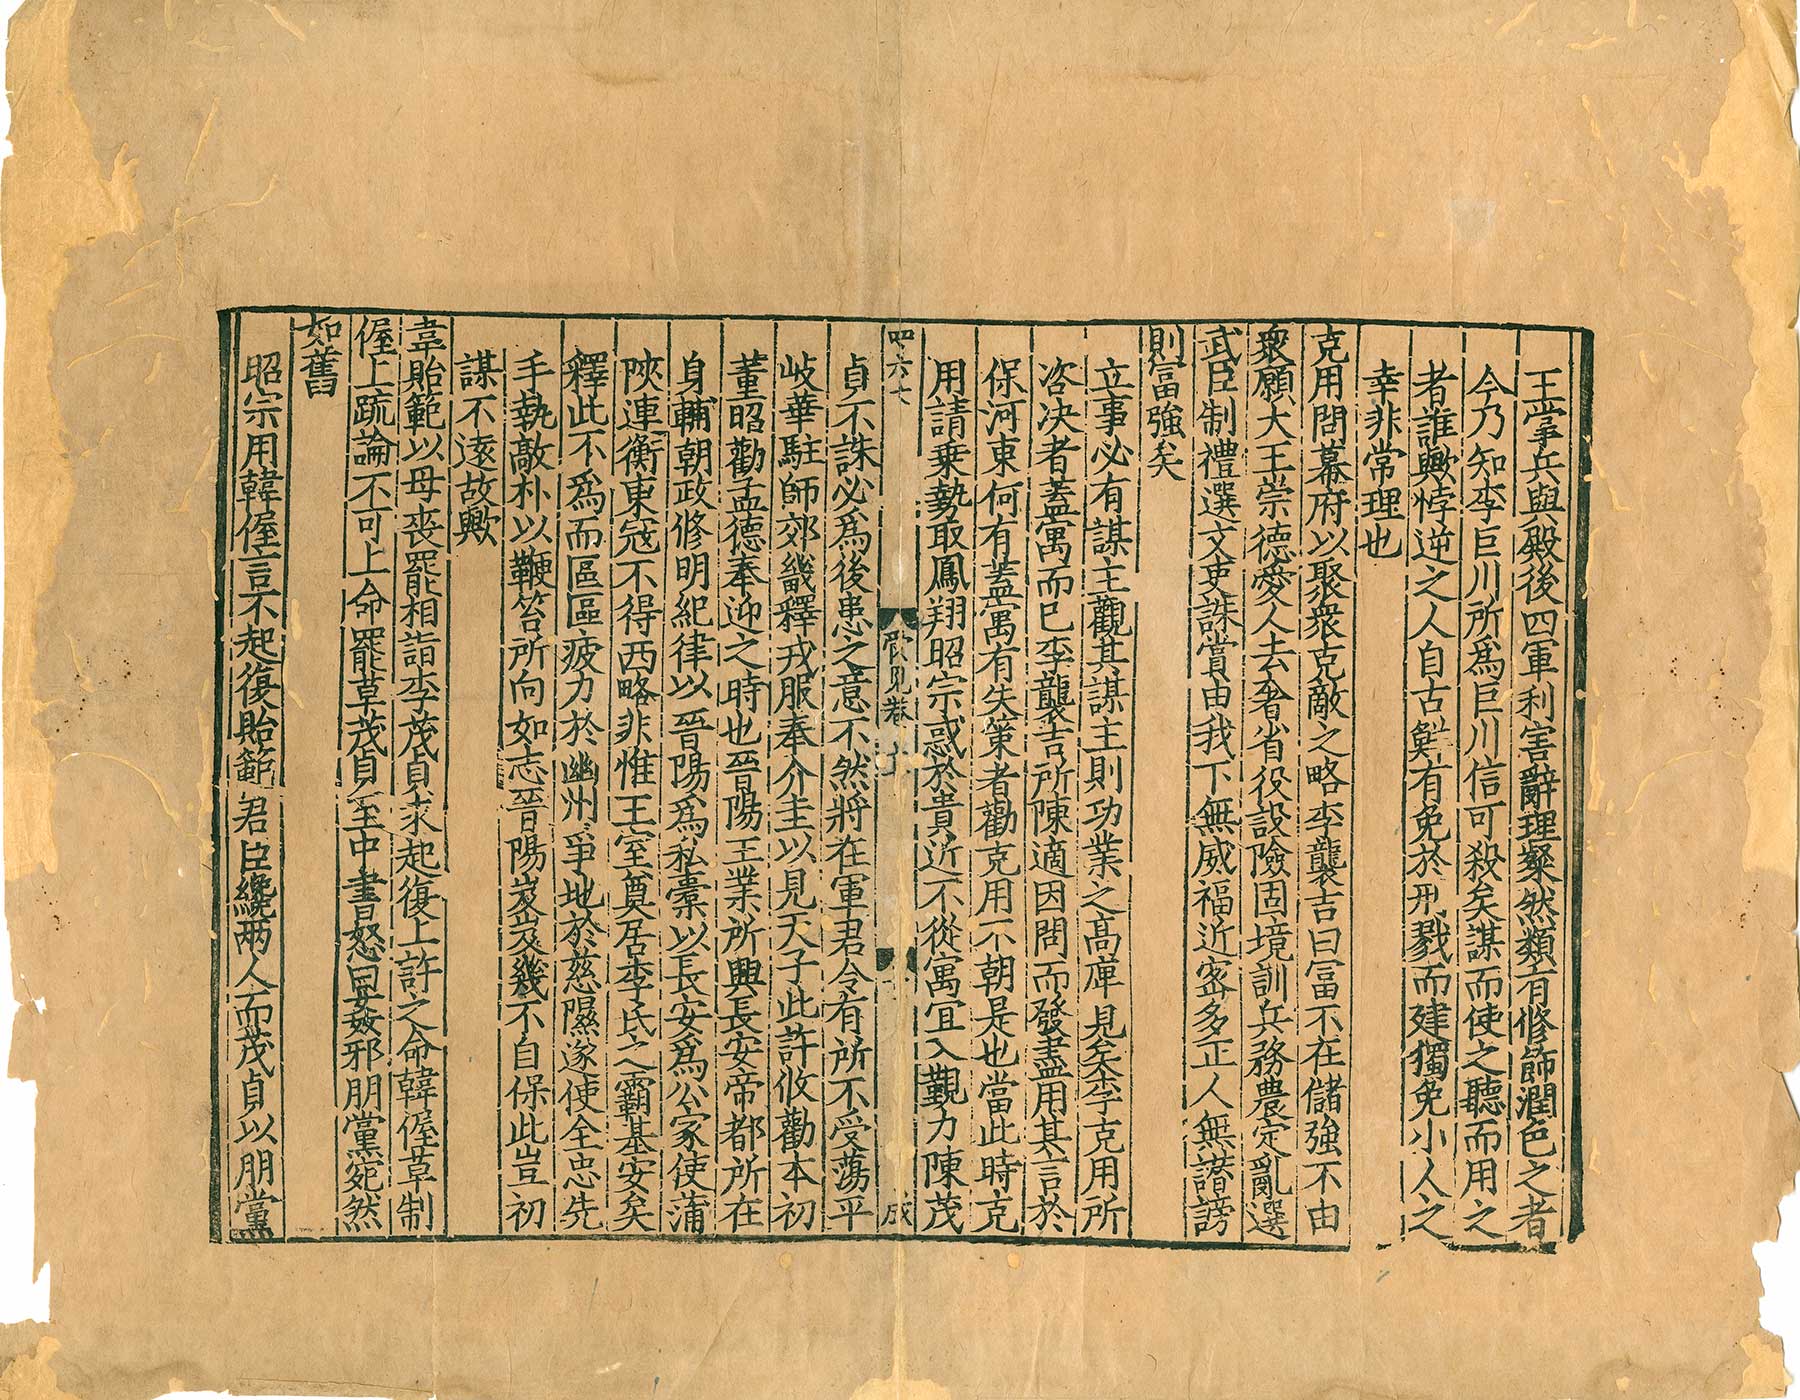 王掌兵與殿後四軍利害辭理粲然類有修飾潤色之者
今乃知李巨川所爲巨川信可殺矣謀而使之聽而用之
者誰歟悖逆之人自古鮮有免於刑戮而建獨免小人之
幸非常理也
克用問幕府以聚衆克敵之略李襲吉曰富不在儲強不由
衆願大王崇德愛人去奢省役設險固境訓兵務農定亂選
武臣制禮選文吏誅賞由我下無威福近密多正人無譖謗
則富強矣
立事必有謀主觀其謀主則功業之高庳見矣李克用所
咨决者蓋寓而已李襲吉所陳適因問而發盡用其言於
保河東何有蓋寓有失策者勸克用不朝是也當此時克
用請乗勢取鳳翔昭宗惑於貴近不從寓宜入觀力陳茂
四六七
管見卷
成
貞不誅必爲後患之意不然將在軍君令有所不受蕩平
岐華駐師郊畿釋戎服奉介圭以見天子此許攸勸本初
董昭勸孟德奉迎之時也晉陽王業所興長安帝都所在
身輔朝政修明紀律以晉陽爲私橐以長安爲公家使蒲
陜連衡東冦不得西略非惟王室奠居李氏之霸基安矣
釋此不爲而區區疲力於幽州爭地於慈隰遂使全忠先
手執敲朴以鞭笞所向如志晉陽岌岌幾不自保此豈初
謀不遠故歟
韋貽範以母喪罷相詣李茂貞求起復上許之命韓偓草制
偓上疏論不可上命罷草茂貞至中書怒曰姦邪朋黨宛然
如舊
昭宗用韓偓言不起復貽範君臣纔兩人而茂貞以朋黨